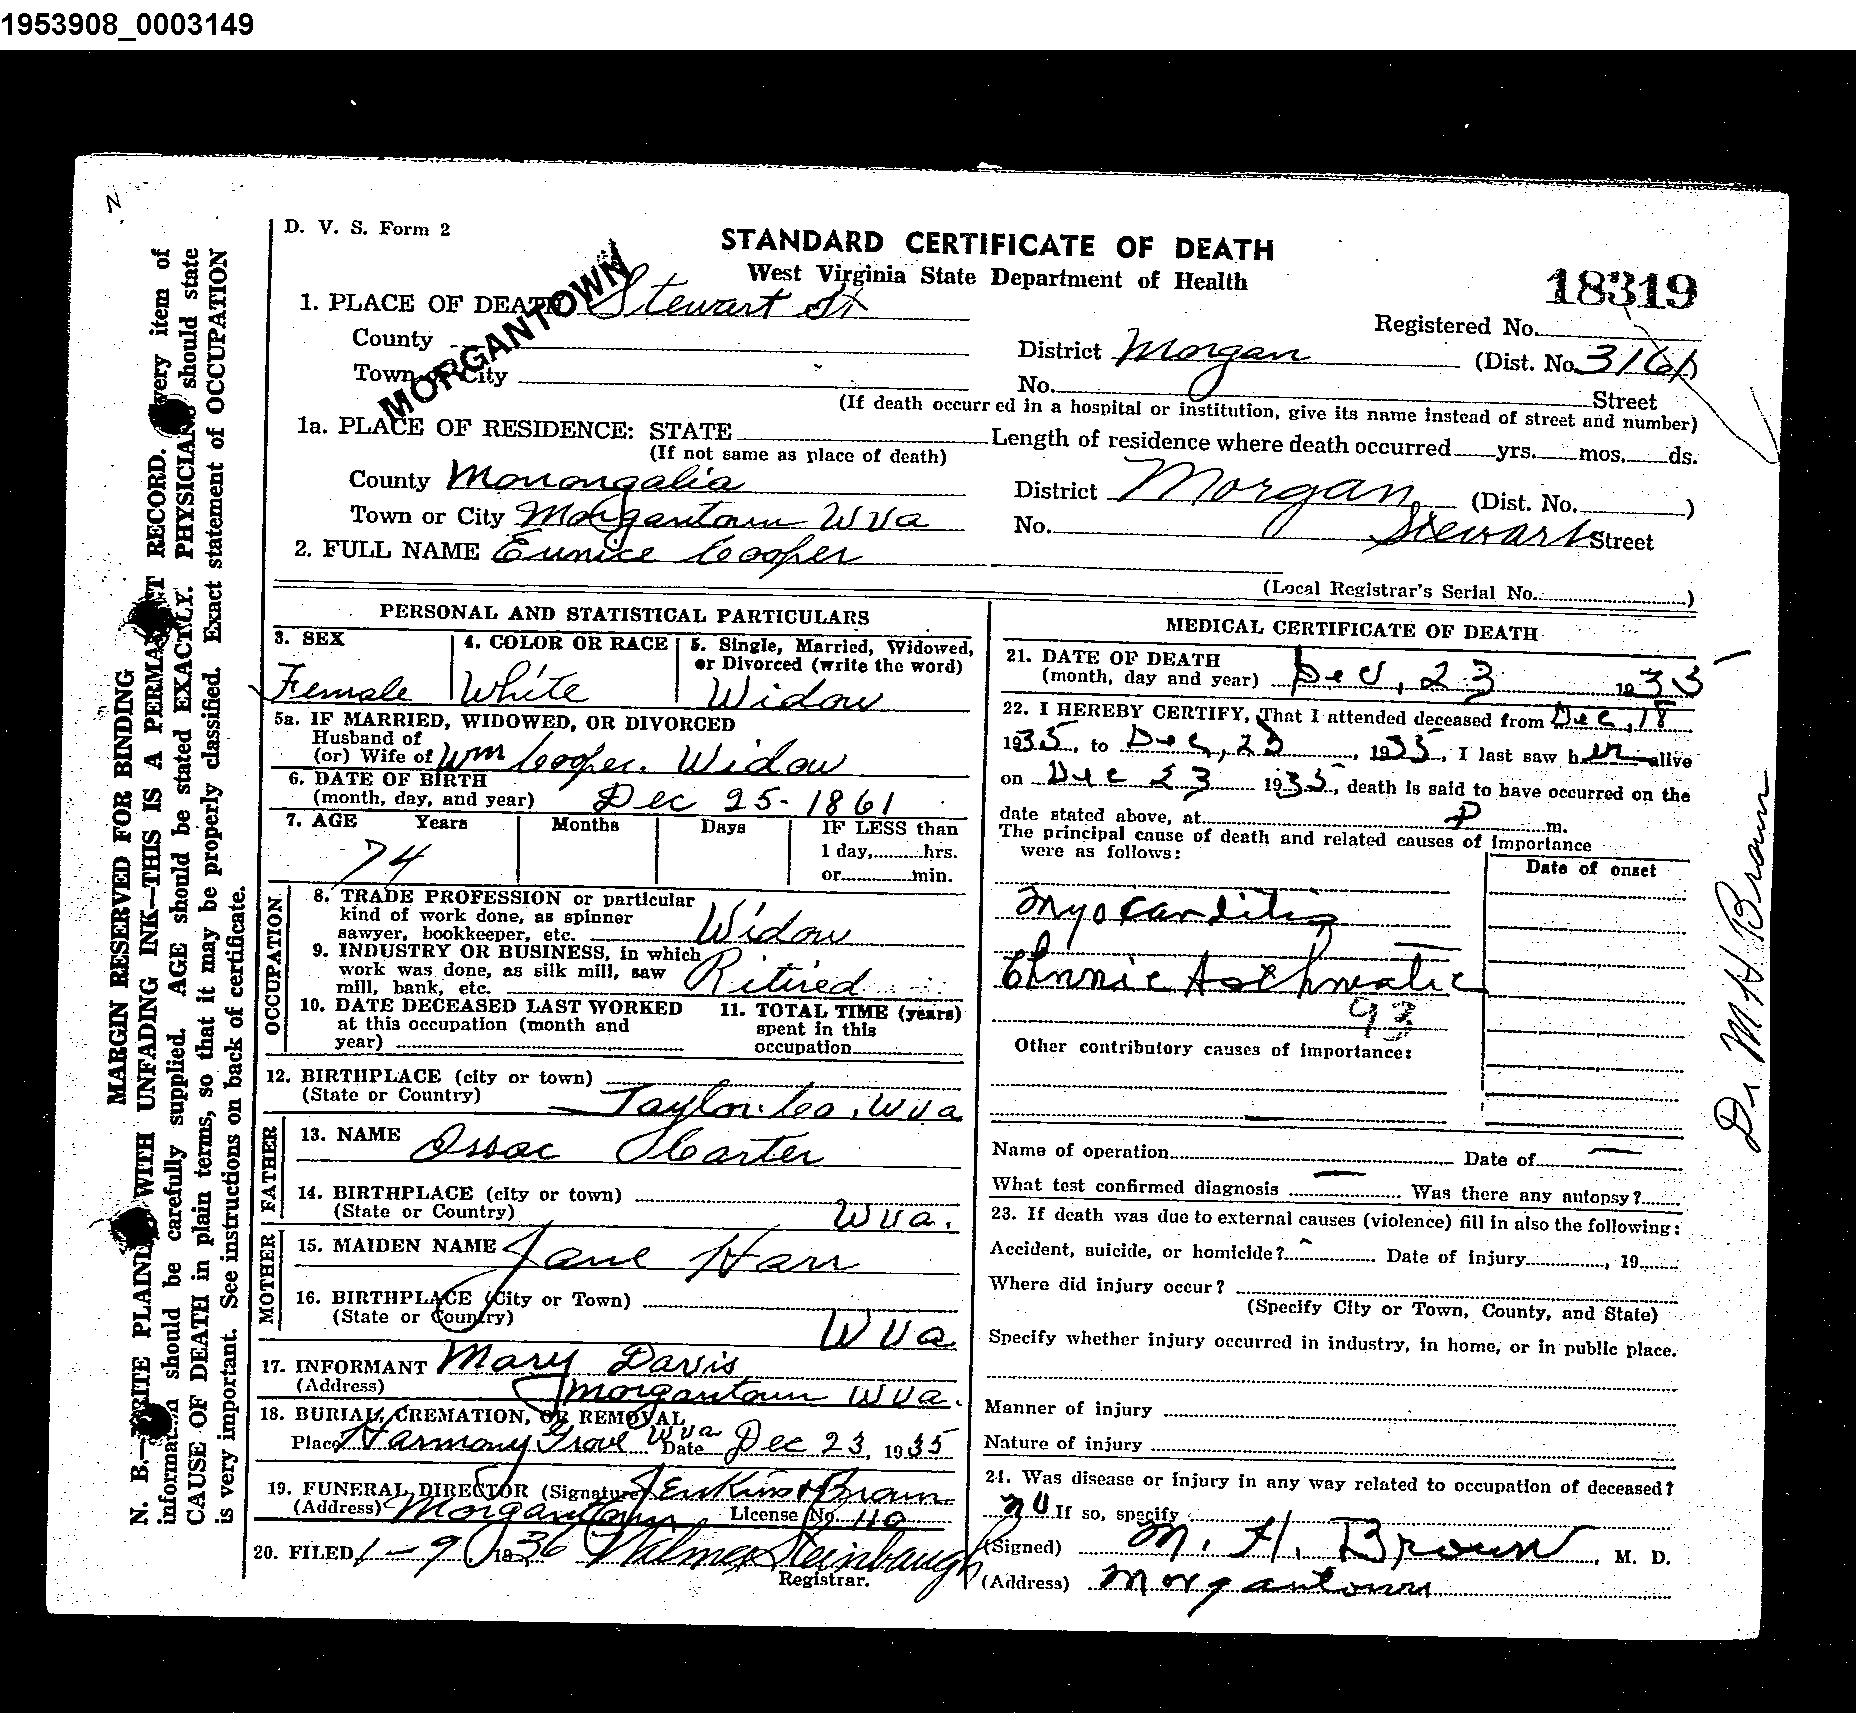 1953908_0003149
N
D. V. S. Form 2
STANDARD CERTIFICATE OF DEATH
West Virginia State Department of Health
18319
MORGANTOWN
1. PLACE OF DEATH Stewart St
Registered No.
County
District Morgan (Dist. No. 3161)
Town or City
No. Street
(If death occurred in a hospital or institution, give its name instead of street and number)
1a. PLACE OF RESIDENCE: STATE
Length of residence where death occurred yrs. mos. ds.
(If not same as place of death)
County Monongalia
District Morgan (Dist. No. )
Town or City Morgantown W Va
No. Stewart Street
2. FULL NAME Eunice Cooper
(Local Registrar's Serial No. )
PERSONAL AND STATISTICAL PARTICULARS
3. SEX
Female
4. COLOR OR RACE
White
5. Single, Married, Widowed,
or Divorced (write the word)
Widow
5a. IF MARRIED, WIDOWED, OR DIVORCED
Husband of
(or) Wife of Wm Cooper. Widow
6. DATE OF BIRTH
(month, day, and year) Dec 25-1861
7. AGE Years Months Days IF LESS than
1 day, hrs.
or min.
74
OCCUPATION
8. TRADE PROFESSION or particular
kind of work done, as spinner
sawyer, bookkeeper, etc. Widow
9. INDUSTRY OR BUSINESS, in which
work was done, as silk mill, saw
mill, bank, etc. Ritired
10. DATE DECEASED LAST WORKED
at this occupation (month and
year)
11. TOTAL TIME (years)
spent in this
occupation
12. BIRTHPLACE (city or town)
(State or Country) Taylor. Co. W Va
FATHER
13. NAME Ossac Carter
14. BIRTHPLACE (city or town)
(State or Country) W Va.
MOTHER
15. MAIDEN NAME Jane Harr
16. BIRTHPLACE (City or Town)
(State or Country) W Va
17. INFORMANT Mary Davis
(Address) Morgantown W Va.
18. BURIAL, CREMATION, OR REMOVAL
Place Harmony Grove W Va Date Dec 23, 1935
19. FUNERAL DIRECTOR (Signature) Jenkins & Brown
(Address) Morgantown License No. 110
20. FILED 1-9, 1936 Wilmer Steinbaugh
Registrar.
MEDICAL CERTIFICATE OF DEATH
21. DATE OF DEATH
(month, day and year) Dec, 23 1935
22. I HEREBY CERTIFY, That I attended deceased from Dec, 18
1935, to Dec, 23, 1935, I last saw her alive
on Dec 23 1935, death is said to have occurred on the
date stated above, at P m.
The principal cause of death and related causes of Importance
were as follows:
Date of onset
Myocarditis
Chronic Asthmatic
93
Other contributory causes of importance:
Name of operation Date of —
What test confirmed diagnosis — Was there any autopsy?
23. If death was due to external causes (violence) fill in also the following:
Accident, suicide, or homicide? - Date of injury , 19
Where did injury occur?
(Specify City or Town, County, and State)
Specify whether injury occurred in industry, in home, or in public place.
Manner of injury
Nature of injury
24. Was disease or injury in any way related to occupation of deceased?
no If so, specify
(Signed) M. H. Brown, M. D.
(Address) Morgantown
Dr M H Brown
MARGIN RESERVED FOR BINDING
N. B.—WRITE PLAINLY WITH UNFADING INK—THIS IS A PERMANENT RECORD. Every item of
information should be carefully supplied. AGE should be stated EXACTLY. PHYSICIANS should state
CAUSE OF DEATH in plain terms, so that it may be properly classified. Exact statement of OCCUPATION
is very important. See instructions on back of certificate.